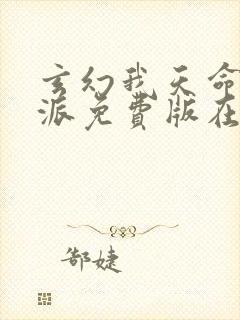 玄幻我天命
派免費版在
郜婕